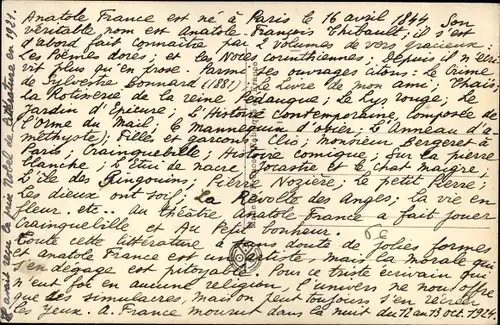 Anatole France est né à Paris le 16 avril 1844. Son
véritable nom est Anatole-François Thibault; il s'est
d'abord fait connaître par 2 volumes de vers gracieux:
Les Poèmes dorés; et les Noces corinthiennes; Depuis, il n'écri
vit plus qu'en prose. Parmi ses ouvrages citons: Le Crime
de Sylvestre Bonnard (1881) Le Livre de mon ami; Thaïs;
La Rotisserie de la reine Pédauque; Le Lys rouge; Le
Jardin d'Epicure; L'Histoire Contemporaine, composée de
L'Orme du Mail; Le mannequin d'osier; L'Anneau d'a-
méthyste); Filles et garçons; Clio; Monsieur Bergeret à
Paris; Crainquebille; Histoire comique; Sur la pierre
blanche; L'Etui de nacre; Jocaste et le chat maigre;
L'île des Pingouins; Pierre Nozière; Le petit Pierre;
Les dieux ont soif; La Révolte des Anges; la vie en
fleur. etc.. Au théâtre, Anatole France a fait jouer
Crainquebille et Au Petit bonheur.
Toute cette littérature a sans doute de jolies formes
et Anatole France est un artiste, mais la morale qui
s'en dégage est pitoyable. Pour ce triste écrivain qui
n'eut foi en aucune religion, l'univers ne nous offre
que des simulacres, mais on peut toujours s'en récréer
les yeux. A. France mourut dans la nuit du 12 au 13 oct. 1924.
Il avait reçu le prix Nobel de Littérature en 1921.